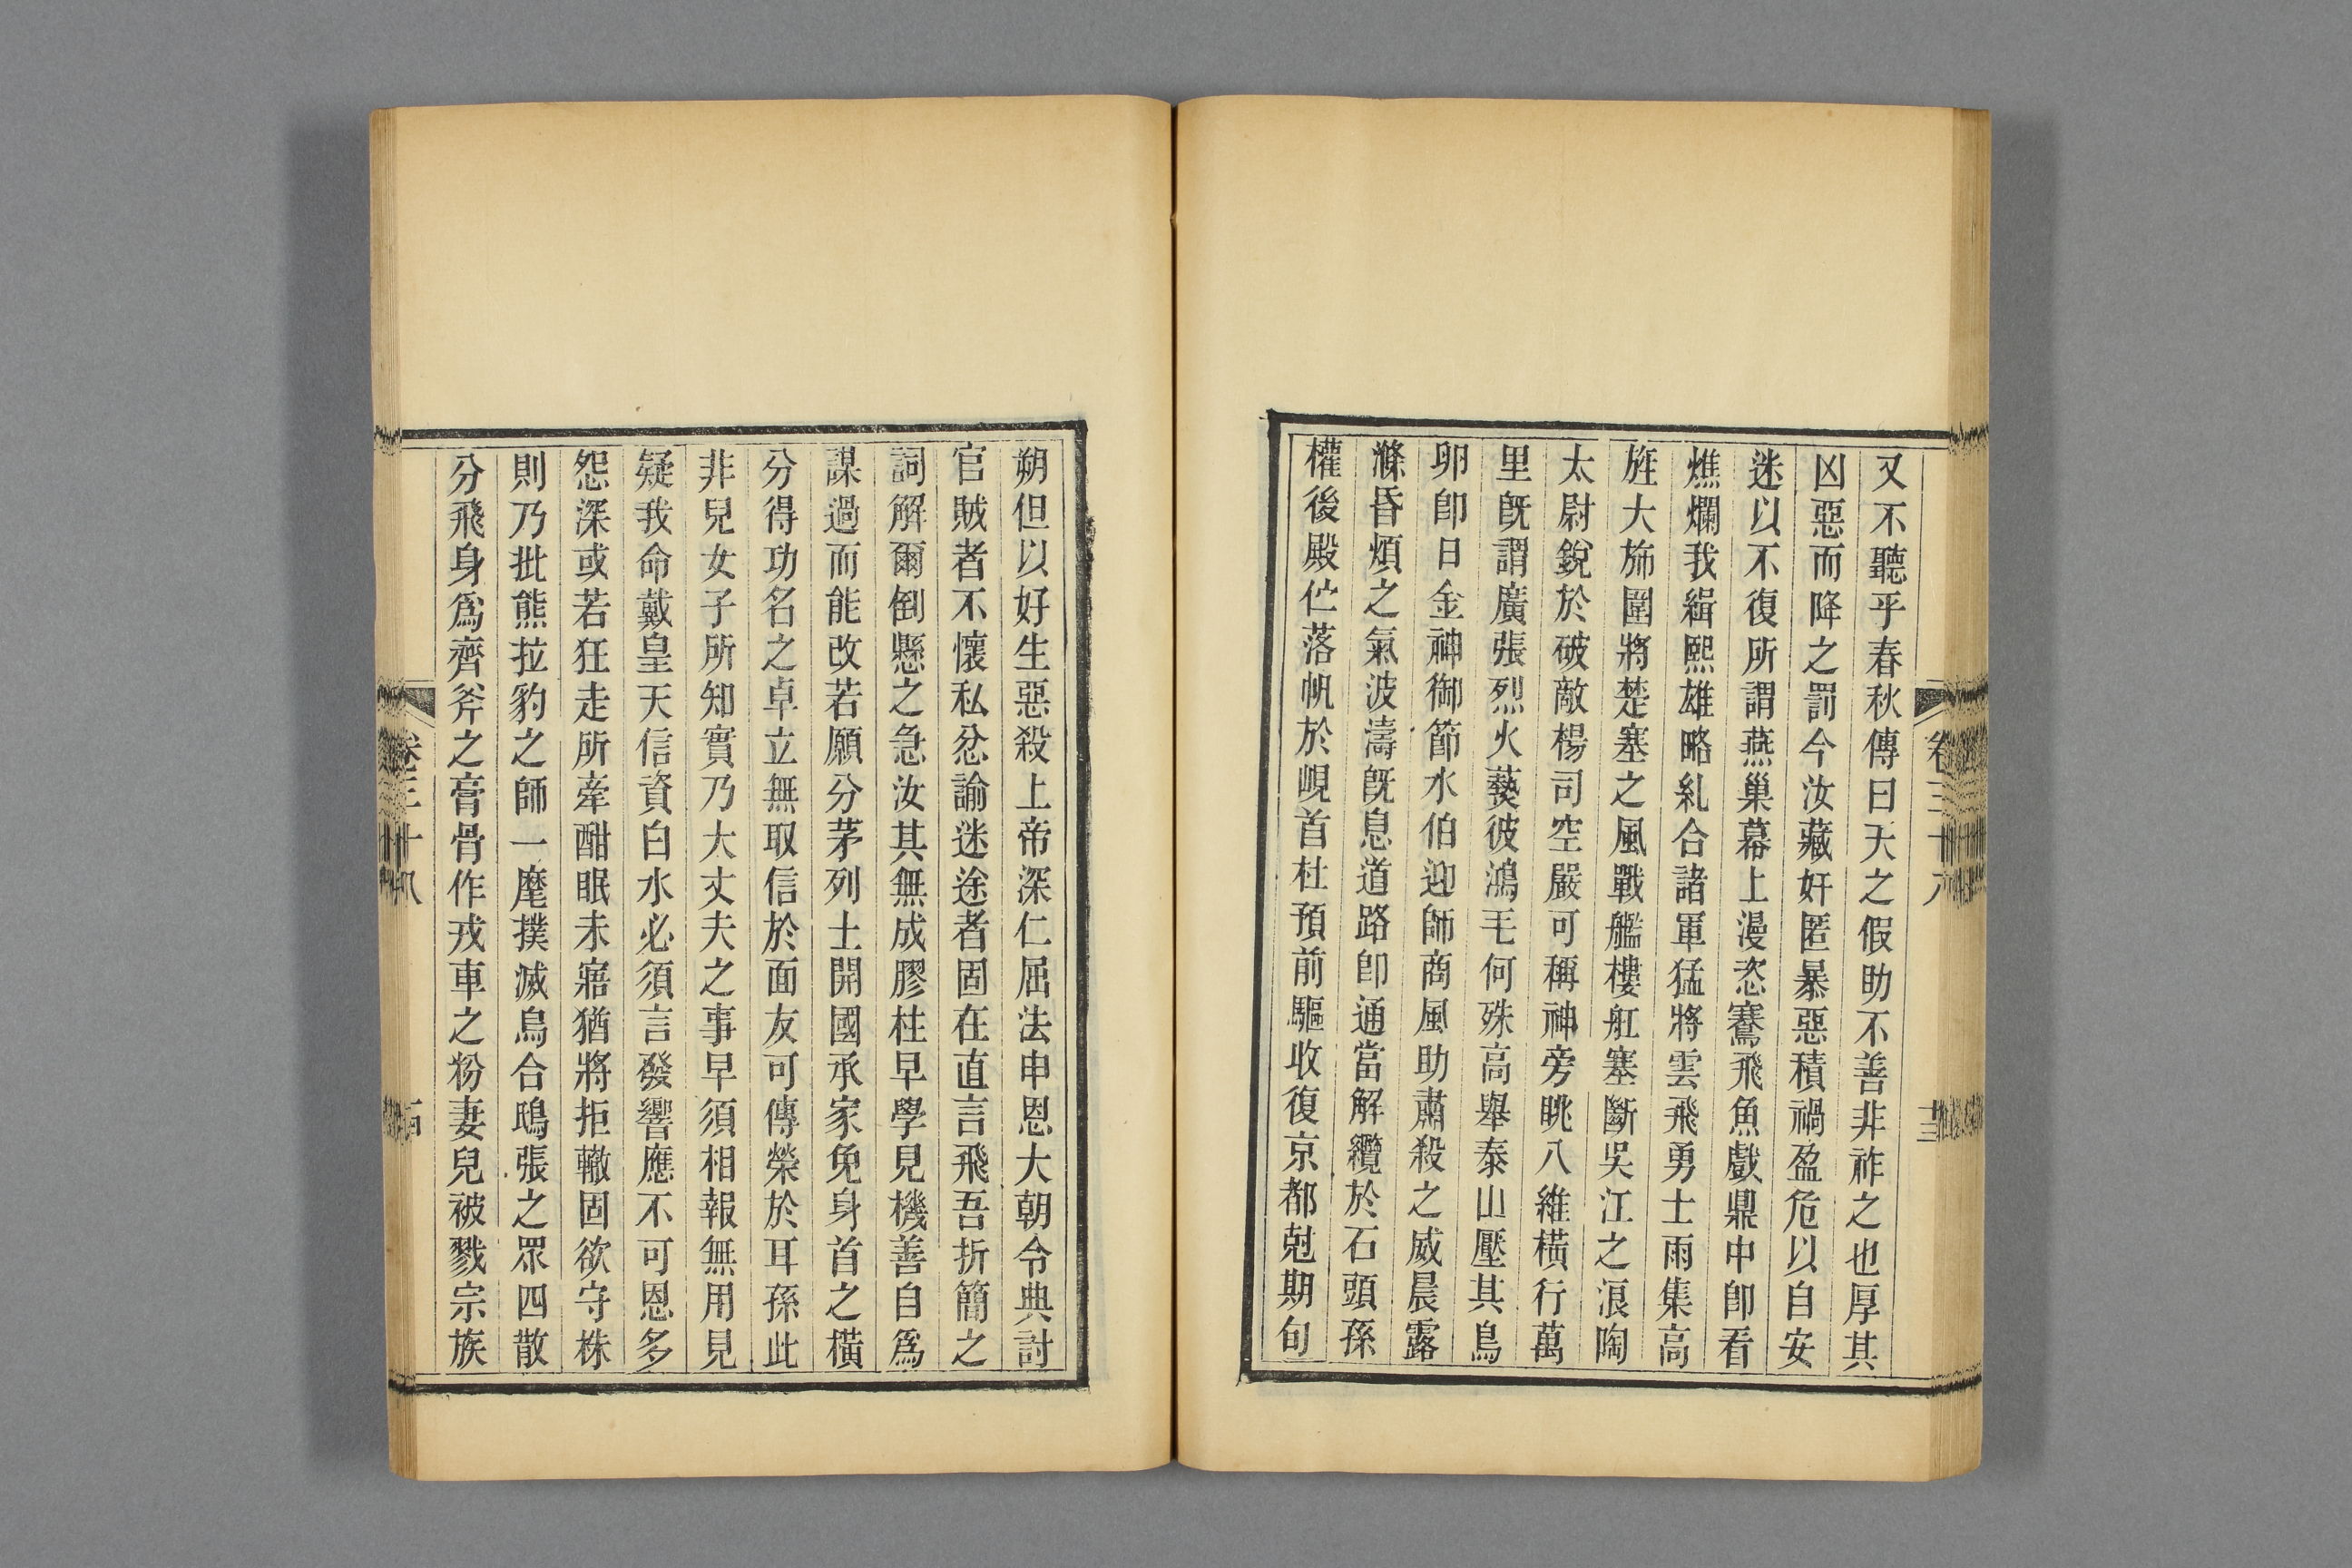 又不聽乎春秋傳曰天之假助不善非祚之也厚其
凶惡而降之罰今汝藏奸匿暴惡積禍盈危以自安
迷以不復所謂燕巢幕上漫恣騫飛魚戲鼎中卽看
燋爛我緝熙雄略糺合諸軍猛將雲飛勇士雨集高
旌大旆圍將楚塞之風戰艦樓舡塞斷吳江之浪陶
太尉銳於破敵楊司空嚴可稱神旁眺八維橫行萬
里旣謂廣張烈火爇彼鴻毛何殊高舉泰山壓其鳥
卵卽日金神御節水伯迎師商風助肅殺之威晨露
滌昏煩之氣波濤旣息道路卽通當解纜於石頭孫
權後殿佇落帆於峴首杜預前驅收復京都尅期旬
卷三十八
十三
朔但以好生惡殺上帝深仁屈法申恩大朝令典討
官賊者不懷私忿諭迷途者固在直言飛吾折簡之
詞解爾倒懸之急汝其無成膠柱早學見機善自爲
謀過而能改若願分茅列土開國承家免身首之橫
分得功名之卓立無取信於面友可傳榮於耳孫此
非兒女子所知實乃大丈夫之事早須相報無用見
疑我命戴皇天信資白水必須言發響應不可恩多
怨深或若狂走所牽酣眠未寤猶將拒轍固欲守株
則乃批熊拉豹之師一麾撲滅烏合鴟張之眾四散
分飛身爲齊斧之膏骨作戎車之粉妻兒被戮宗族
卷三十八